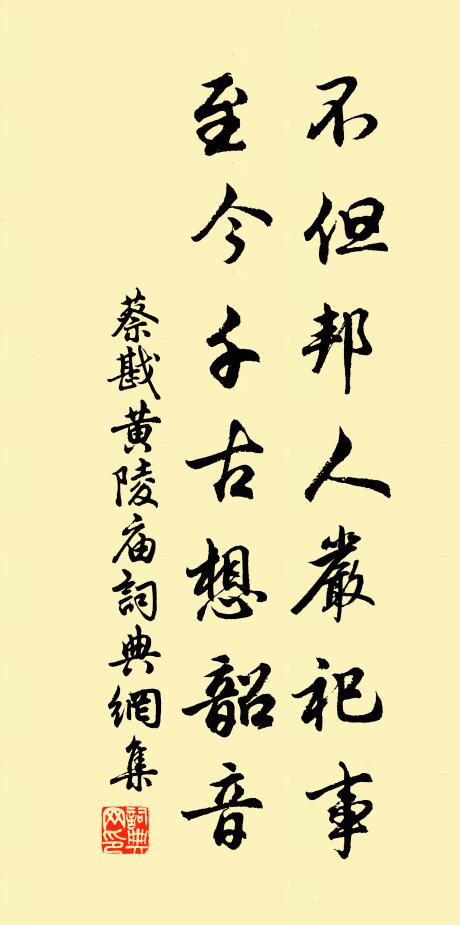 不但邦人嚴祀事
至今千古想韶音
蔡戡黄陵庙詞典網集
詞典網印